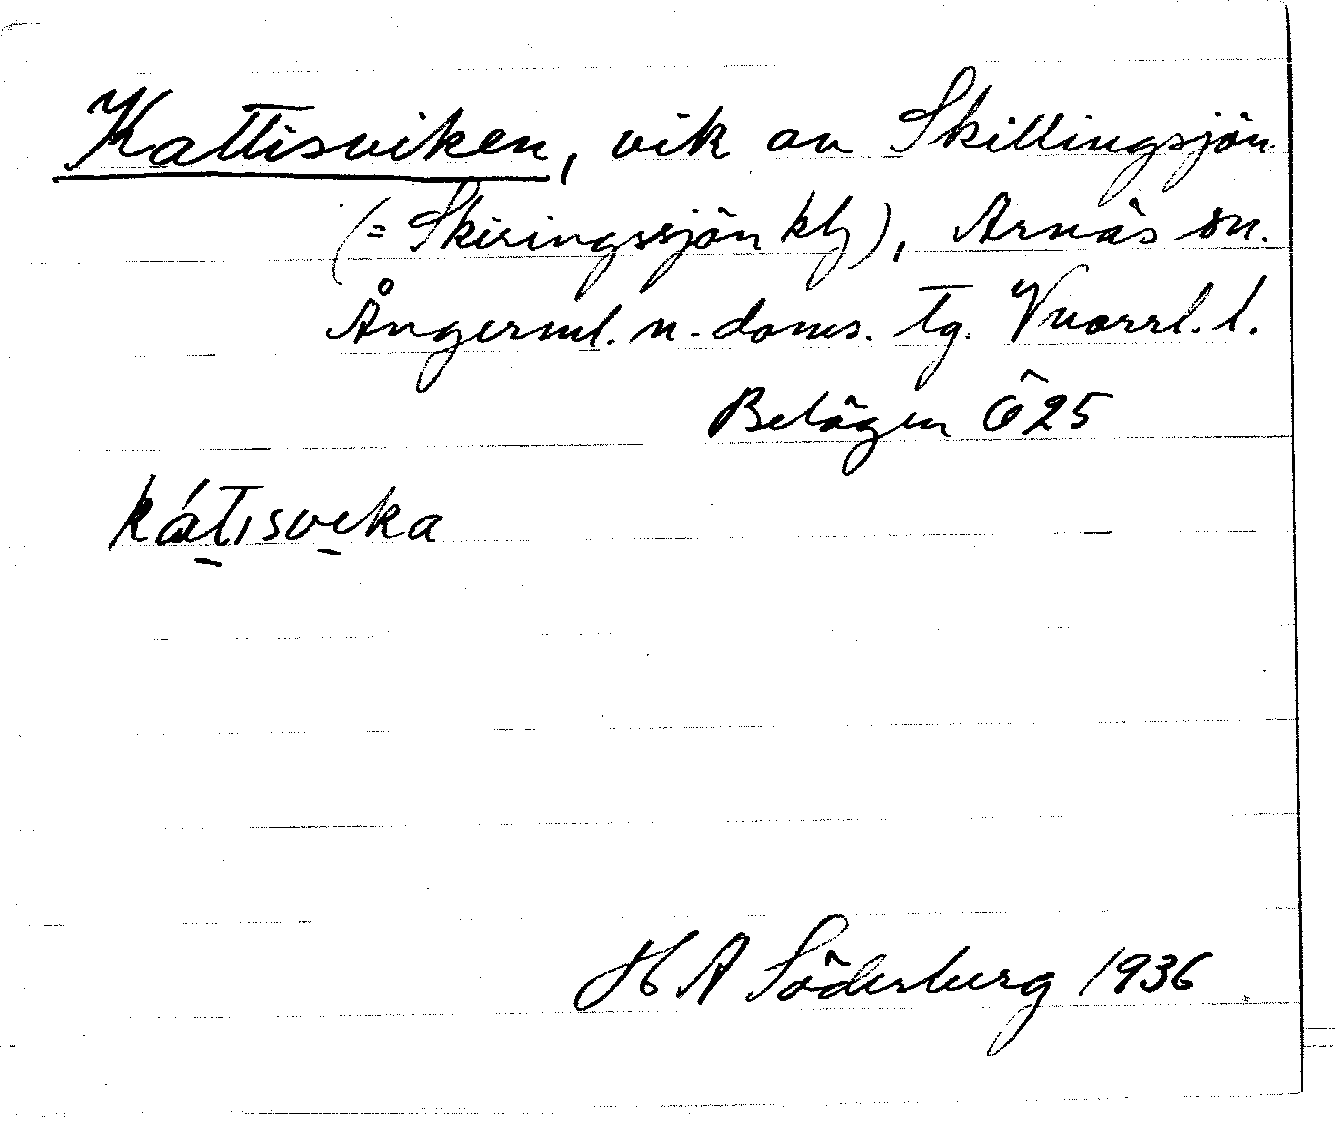 Kattisviken, vik av Skillingsjön
(= Skiringssjön kbg), Arnäs sn.
Ångerml. n. doms. tg. Vnorrl. l.
Belägen Ö25
kátisvika
H A Söderberg 1936